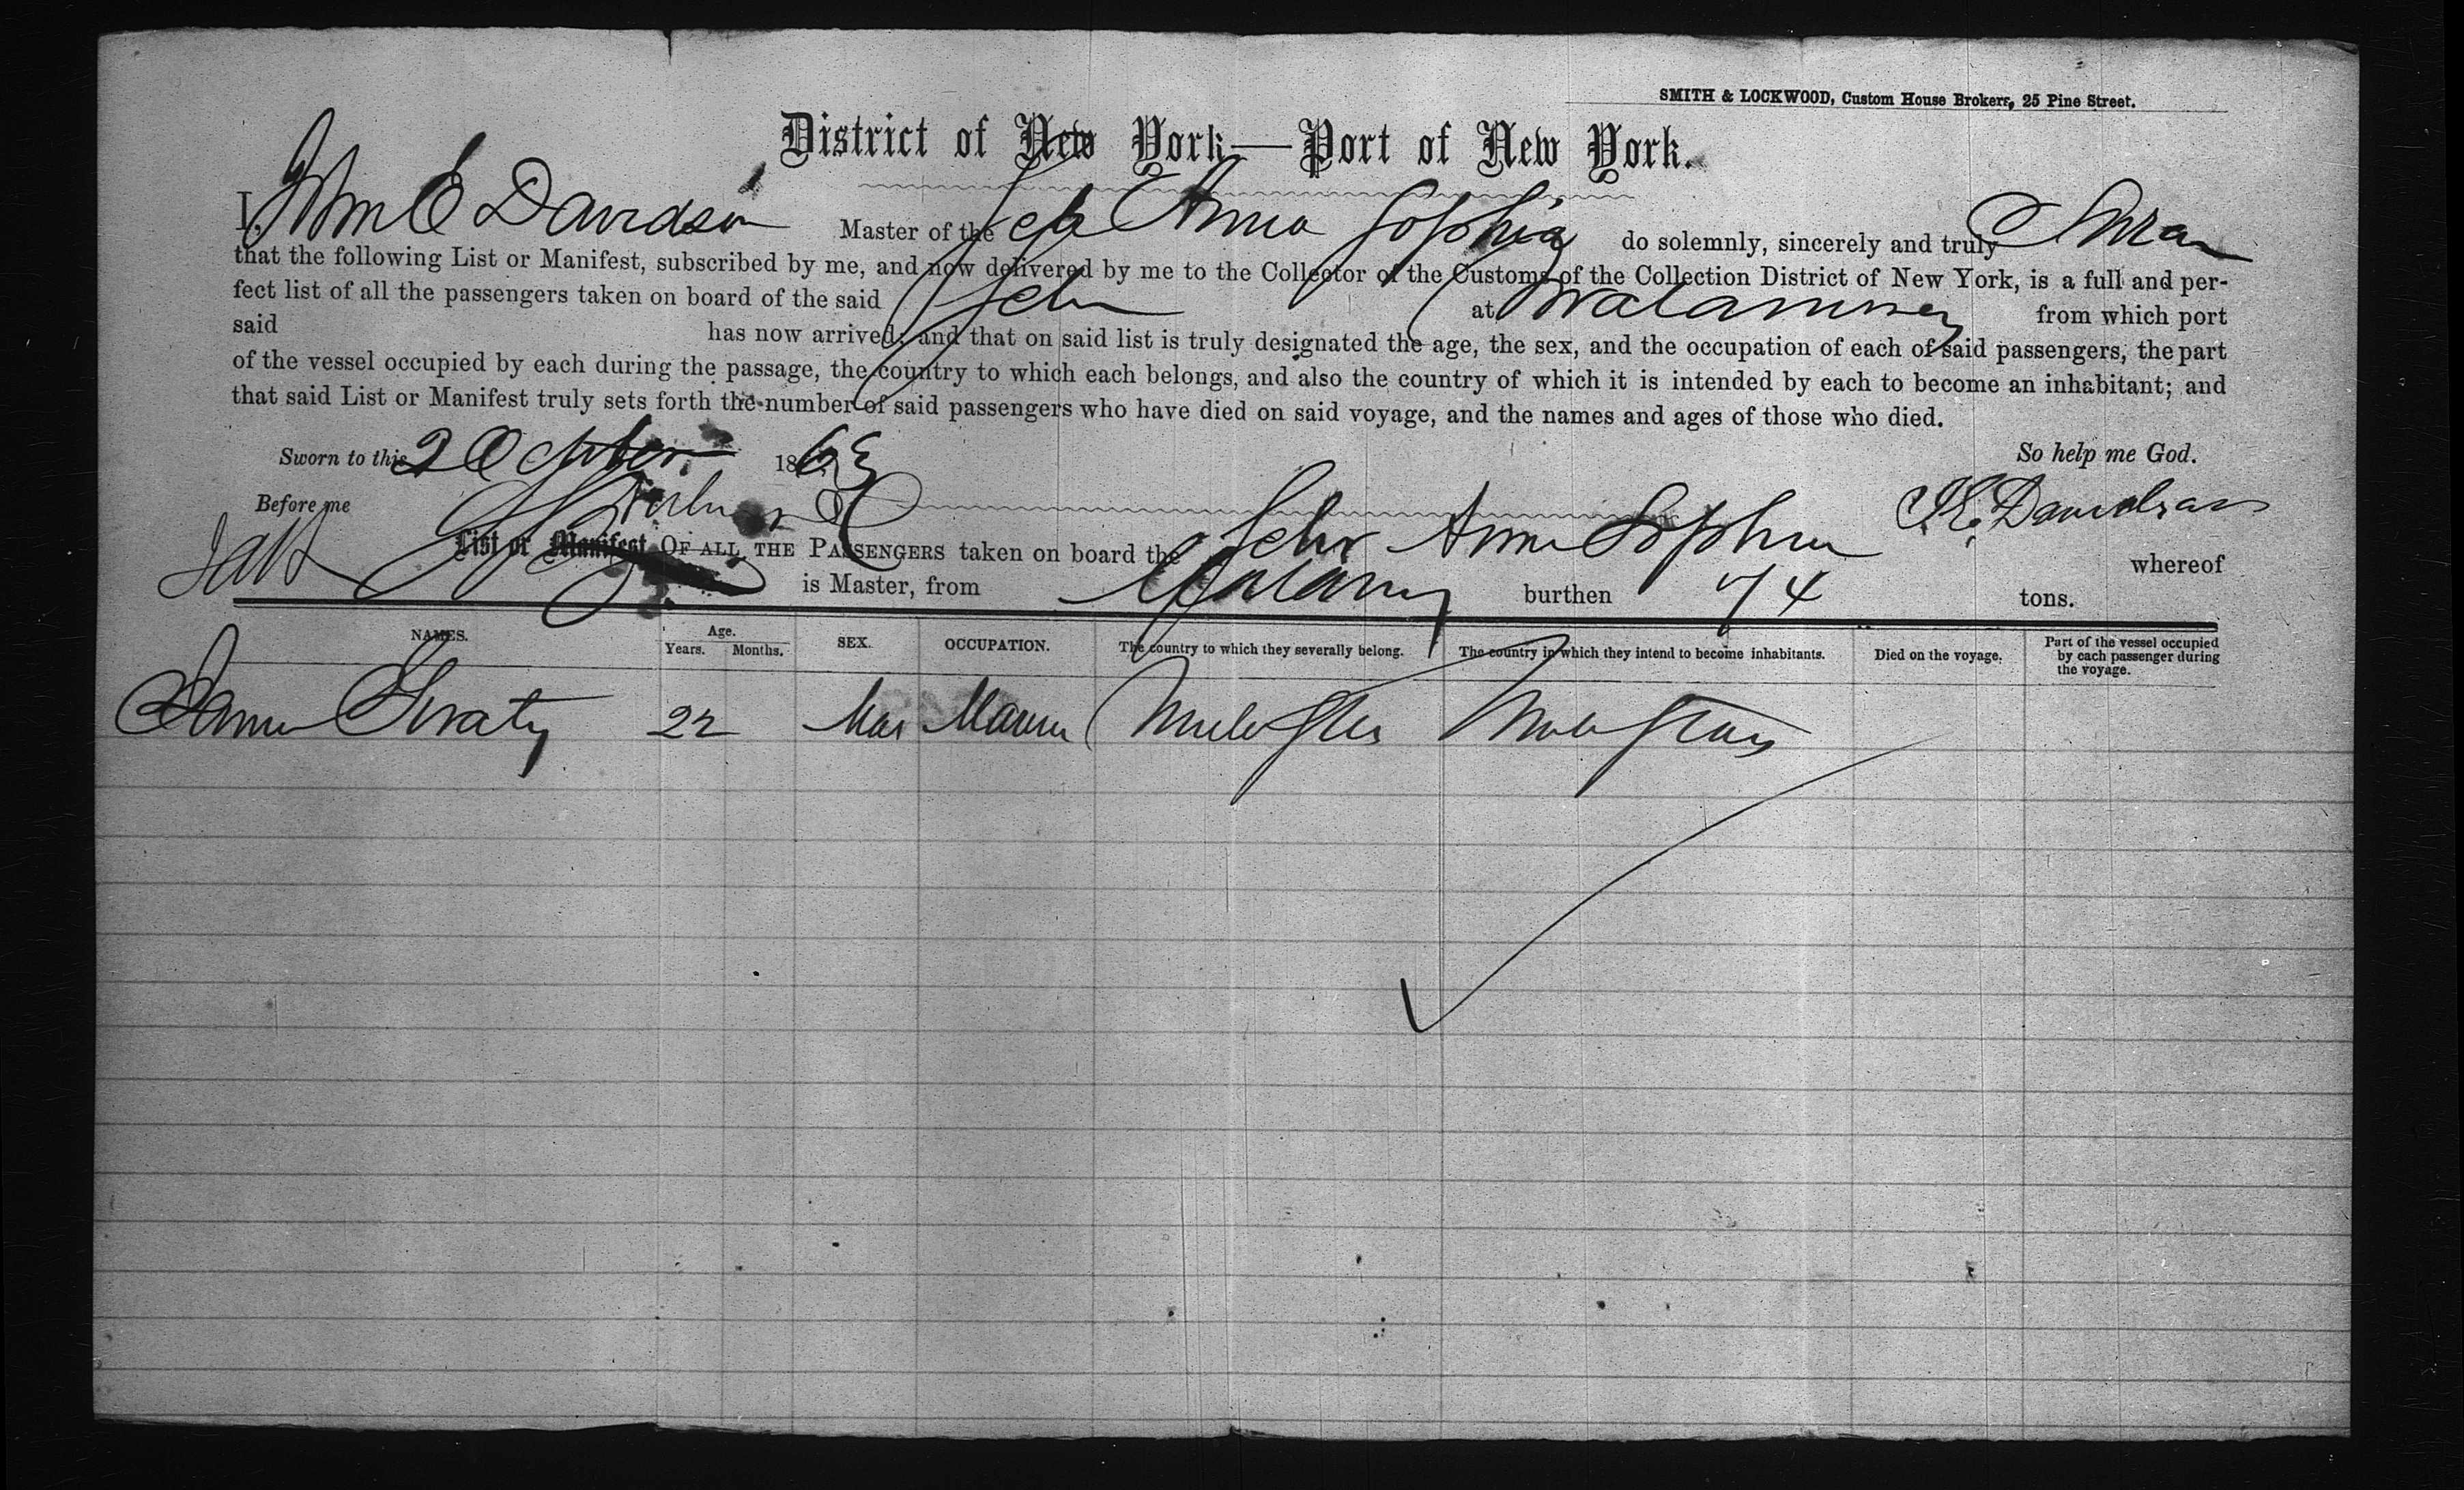 SMITH & LOCKWOOD, Custom House Brokers, 25 Pine Street.
District of New York—Port of New York.
I, E Davidson Master of the Sch Anna Sophia do solemnly, sincerely and truly Swear
that the following List or Manifest, subscribed by me, and now delivered by me to the Collector of the Customs of the Collection District of New York, is a full and per-
fect list of all the passengers taken on board of the said Schr at from which port
said has now arrived; and that on said list is truly designated the age, the sex, and the occupation of each of said passengers, the part
of the vessel occupied by each during the passage, the country to which each belongs, and also the country of which it is intended by each to become an inhabitant; and
that said List or Manifest truly sets forth the number of said passengers who have died on said voyage, and the names and ages of those who died.
Sworn to this 2 October 1863 So help me God.
Before me E. Davidson
List or Manifest OF ALL THE PASSENGERS taken on board the Schr Anna Sophia whereof
is Master, from burthen 74 tons.
NAMES. Age. Years. Months. SEX. OCCUPATION. The country to which they severally belong. The country in which they intend to become inhabitants. Died on the voyage. Part of the vessel occupied by each passenger during the voyage.
22 Mariner